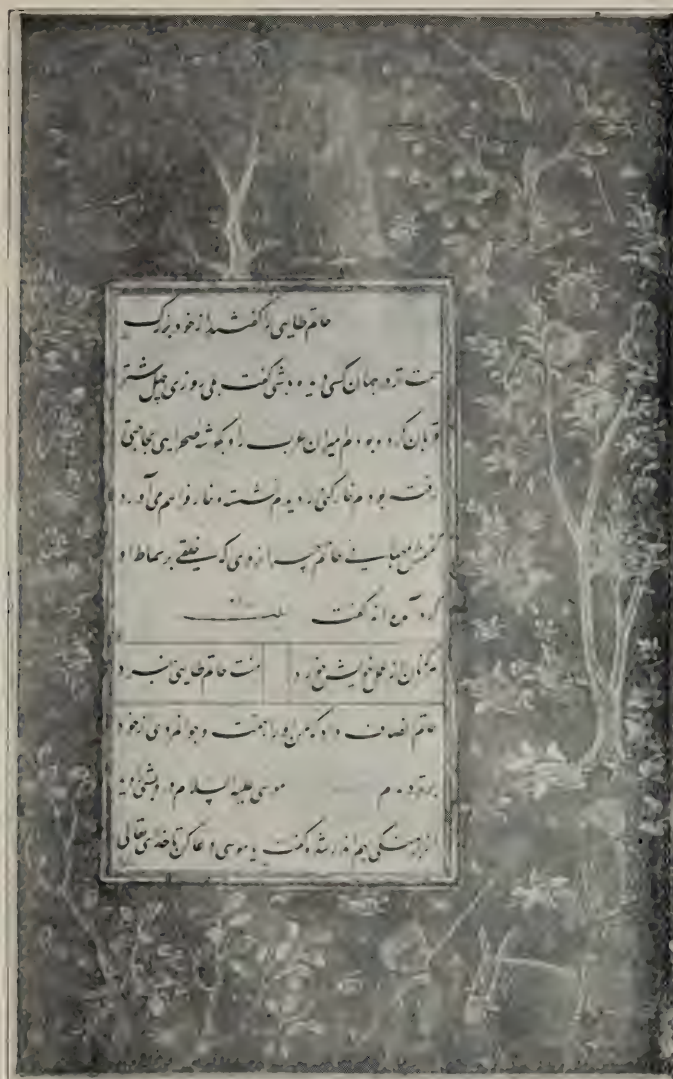 حاتم طایی را گفتند از خود بزرگ
همت تر در جهان کسی دیده باشی گفت بلی روزی چهل شتر
قربان کرده بودم امیران عرب را و بگوشه صحرایی بحاجتی
رفته بودم خارکنی را دیدم پشته خار فراهم می آورد
گفتمش بمهمانی حاتم چرا نروی که خلقی بر سماط او
گرد آمده اند گفت
هرکه نان از عمل خویش خورد منت حاتم طایی نبرد
حاتم انصاف داد که من او را بهمت و جوانمردی از خود
برتر دیدم موسی علیه السلام درویشی را دید
از برهنگی بریگ اندر شده گفت یا موسی دعا کن تا خدای تعالی